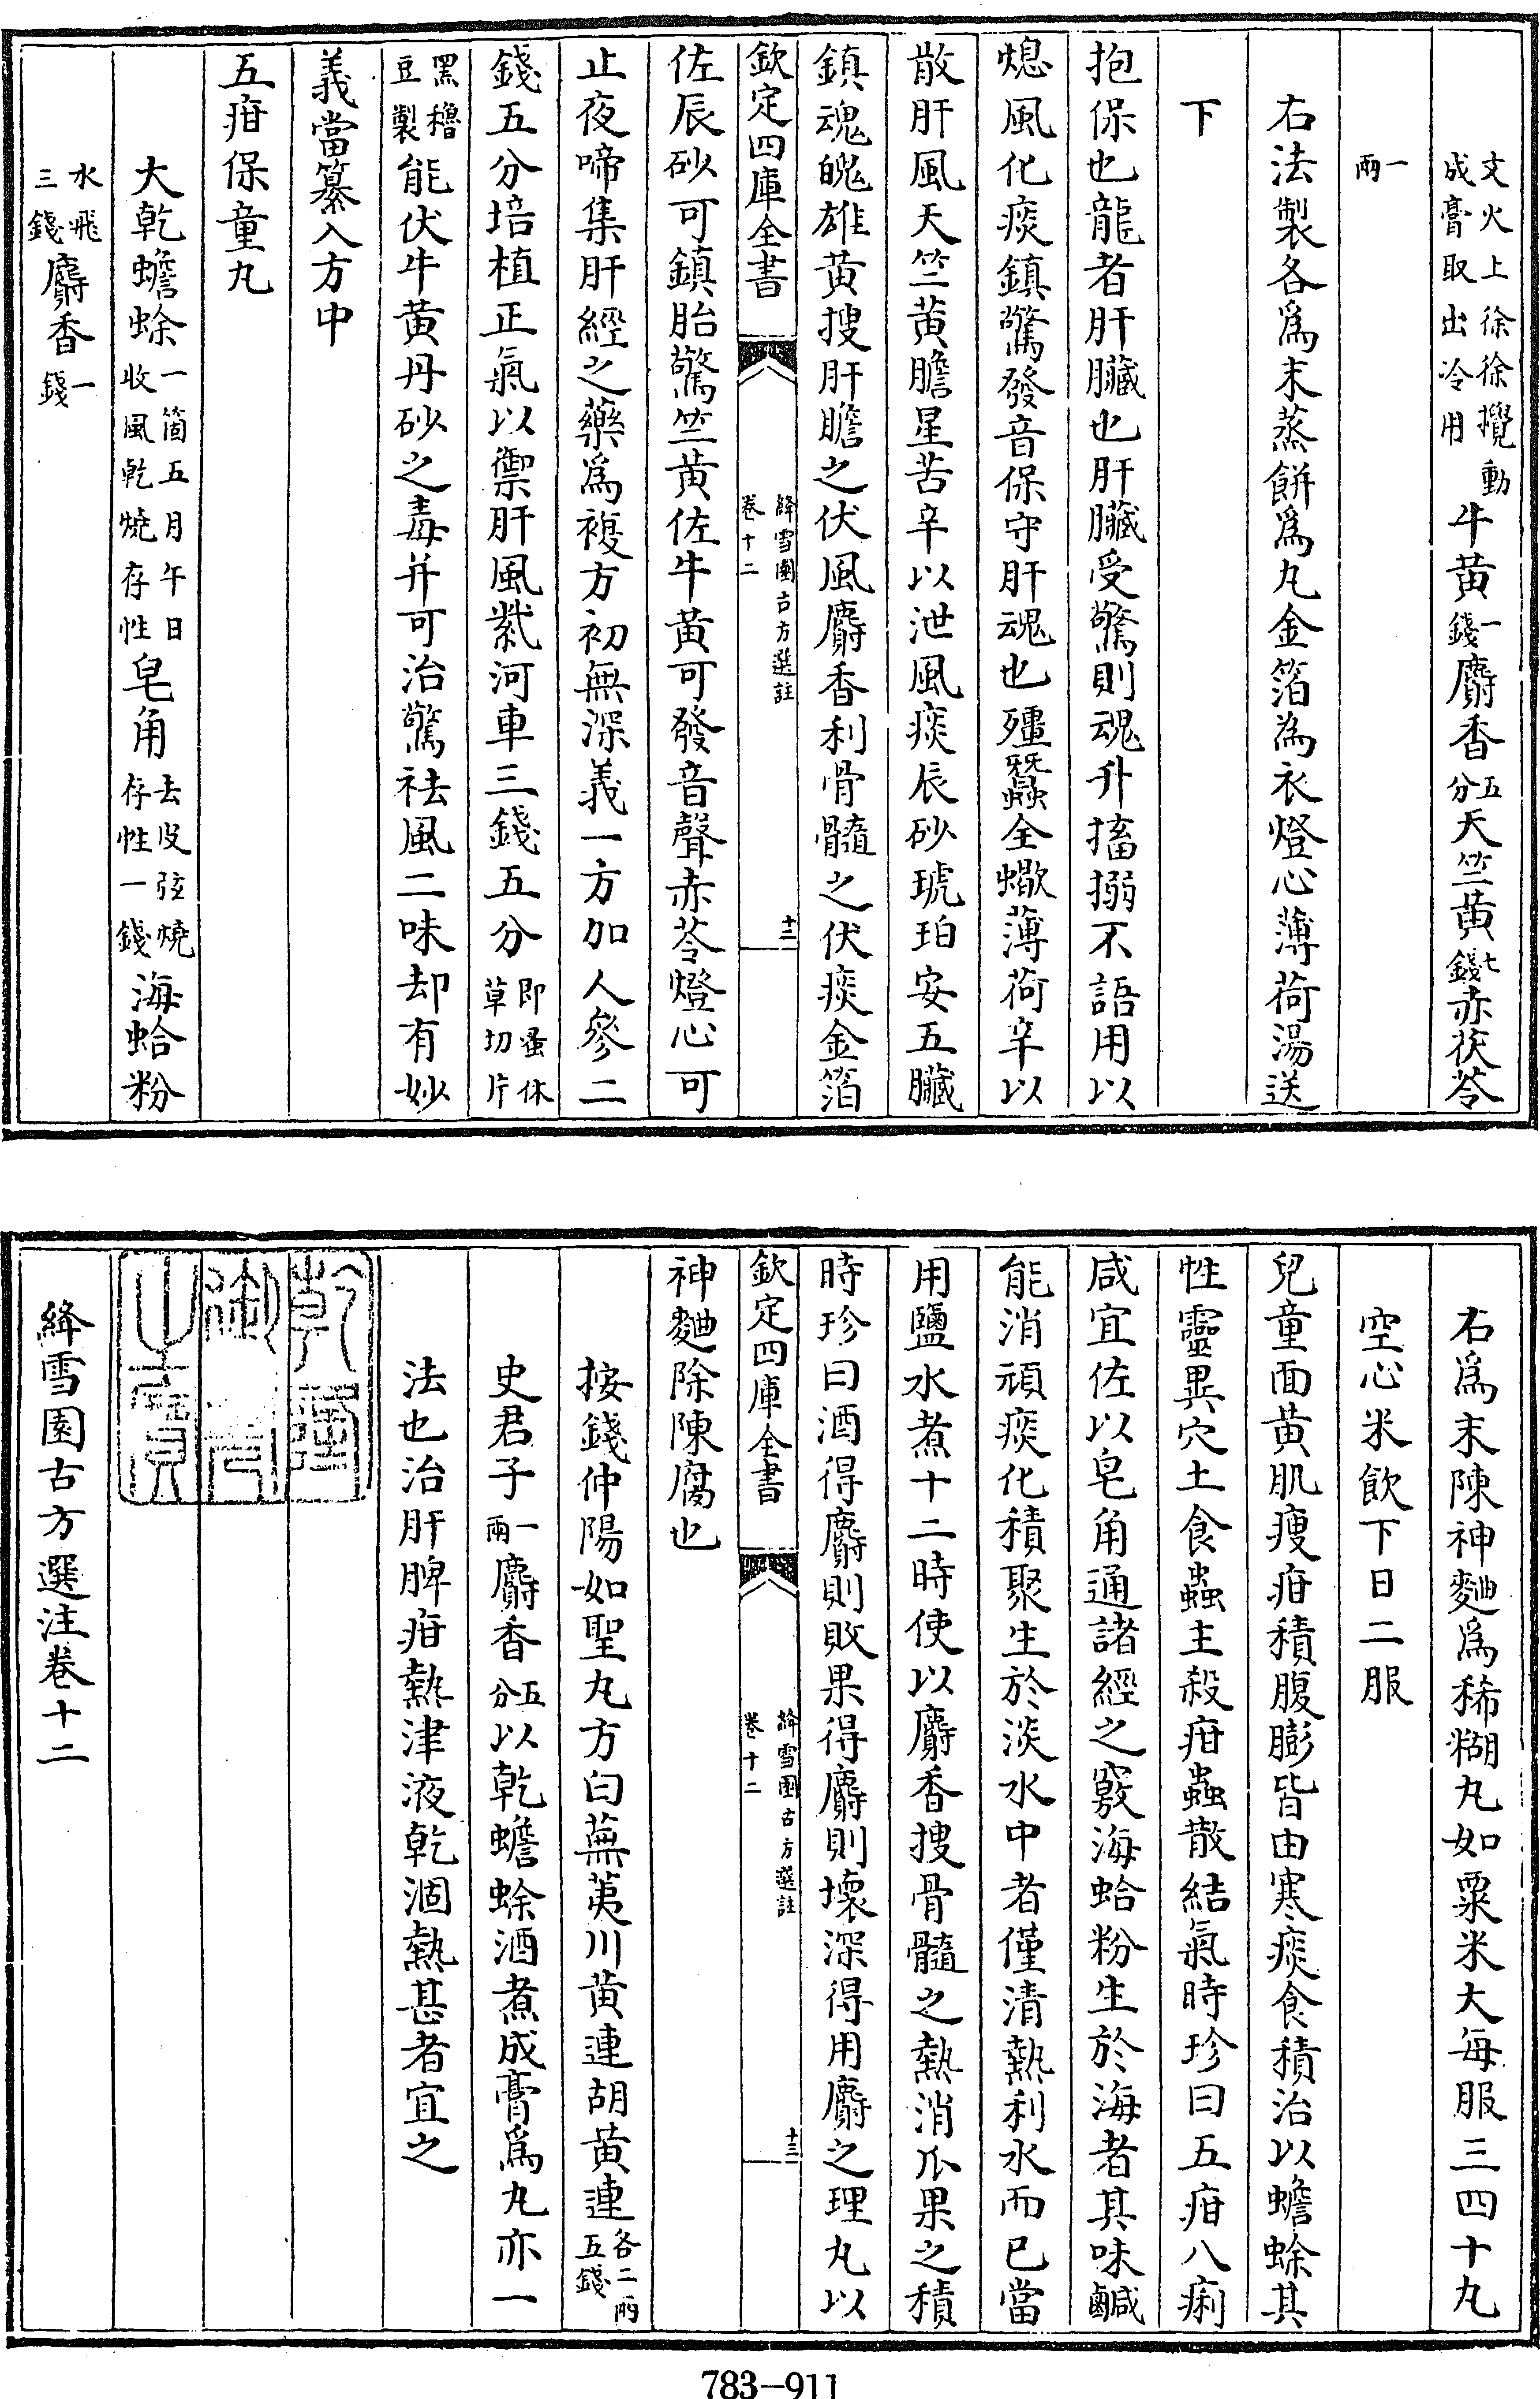 文火上徐徐攪動成膏取出冷用牛黄一錢麝香五分天竺黄七錢赤茯苓
一兩
右法製各為末蒸餅為丸金箔為衣燈心薄荷湯送
下
抱保也龍者肝臟也肝臟受驚則魂升搐搦不語用以
熄風化痰鎮驚發音保守肝魂也殭蠶全蠍薄荷辛以
散肝風天竺黄膽星苦辛以泄風痰辰砂琥珀安五臟
鎮魂魄雄黄搜肝膽之伏風麝香利骨髓之伏痰金箔
欽定四庫全書 絳雪園古方選註卷十二 十二
佐辰砂可鎮胎驚竺黄佐牛黄可發音聲赤苓燈心可
止夜啼集肝經之藥為複方初無深義一方加人參二
錢五分培植正氣以禦肝風紫河車三錢五分即蚤休草切片
黑穭豆製能伏牛黄丹砂之毒并可治驚祛風二味却有妙
義當纂入方中
五疳保童丸
大乾蟾蜍一箇五月午日收風乾燒存性皂角去皮弦燒存性一錢海蛤粉
水飛三錢麝香一錢
右為末陳神麯為稀糊丸如粟米大每服三四十丸
空心米飲下日二服
兒童面黄肌瘦疳積腹膨皆由寒痰食積治以蟾蜍其
性靈異穴土食蟲主殺疳蟲散結氣時珍曰五疳八痢
咸宜佐以皂角通諸經之竅海蛤粉生於海者其味鹹
能消頑痰化積聚生於淡水中者僅清熱利水而已當
用鹽水煮十二時使以麝香搜骨髓之熱消瓜果之積
時珍曰酒得麝則敗果得麝則壞深得用麝之理丸以
欽定四庫全書 絳雪園古方選註卷十二 十三
神麯除陳腐也
按錢仲陽如聖丸方白蕪荑川黄連胡黄連各二兩五錢
史君子一兩麝香五分以乾蟾蜍酒煮成膏為丸亦一
法也治肝脾疳熱津液乾涸熱甚者宜之
乾隆御覽之寶
絳雪園古方選注卷十二
783-911